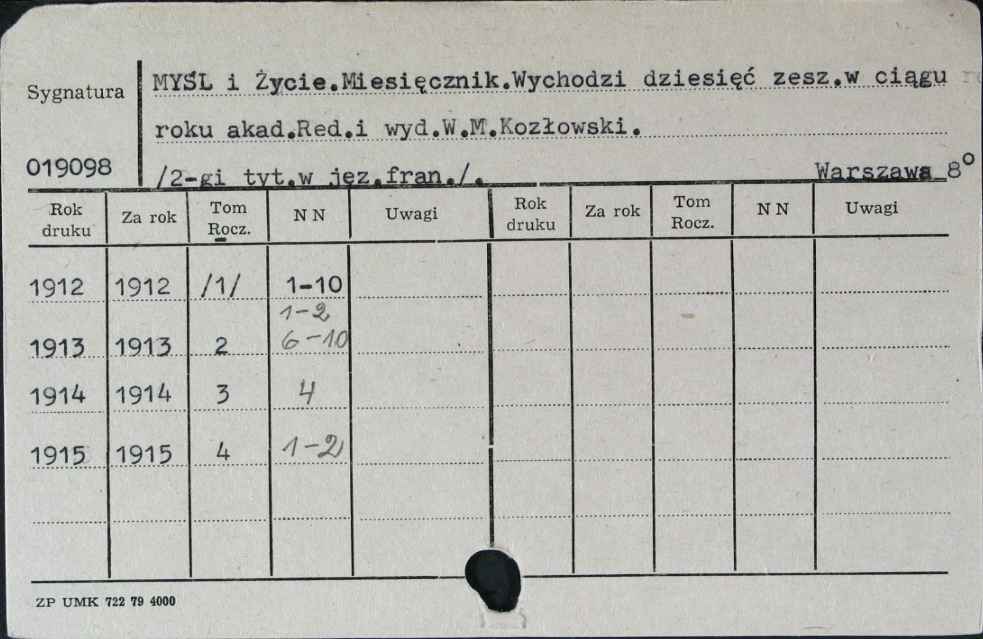 MYŚL i Życie.Miesięcznik.Wychodzi dziesięć zesz.w ciągu
Sygnatura
roku akad.Red.i wyd.W.M.Kozłowski.
019098
/2-gi tyt.w jęz.fran./. Warszawa 8°
Rok druku Za rok Tom Rocz. N N Uwagi Rok druku Za rok Tom Rocz. N N Uwagi
1912 1912 /1/ 1-10
1-2
1913 1913 2 6-10
1914 1914 3 4
1915 1915 4 1-2
ZP UMK 722 79 4000